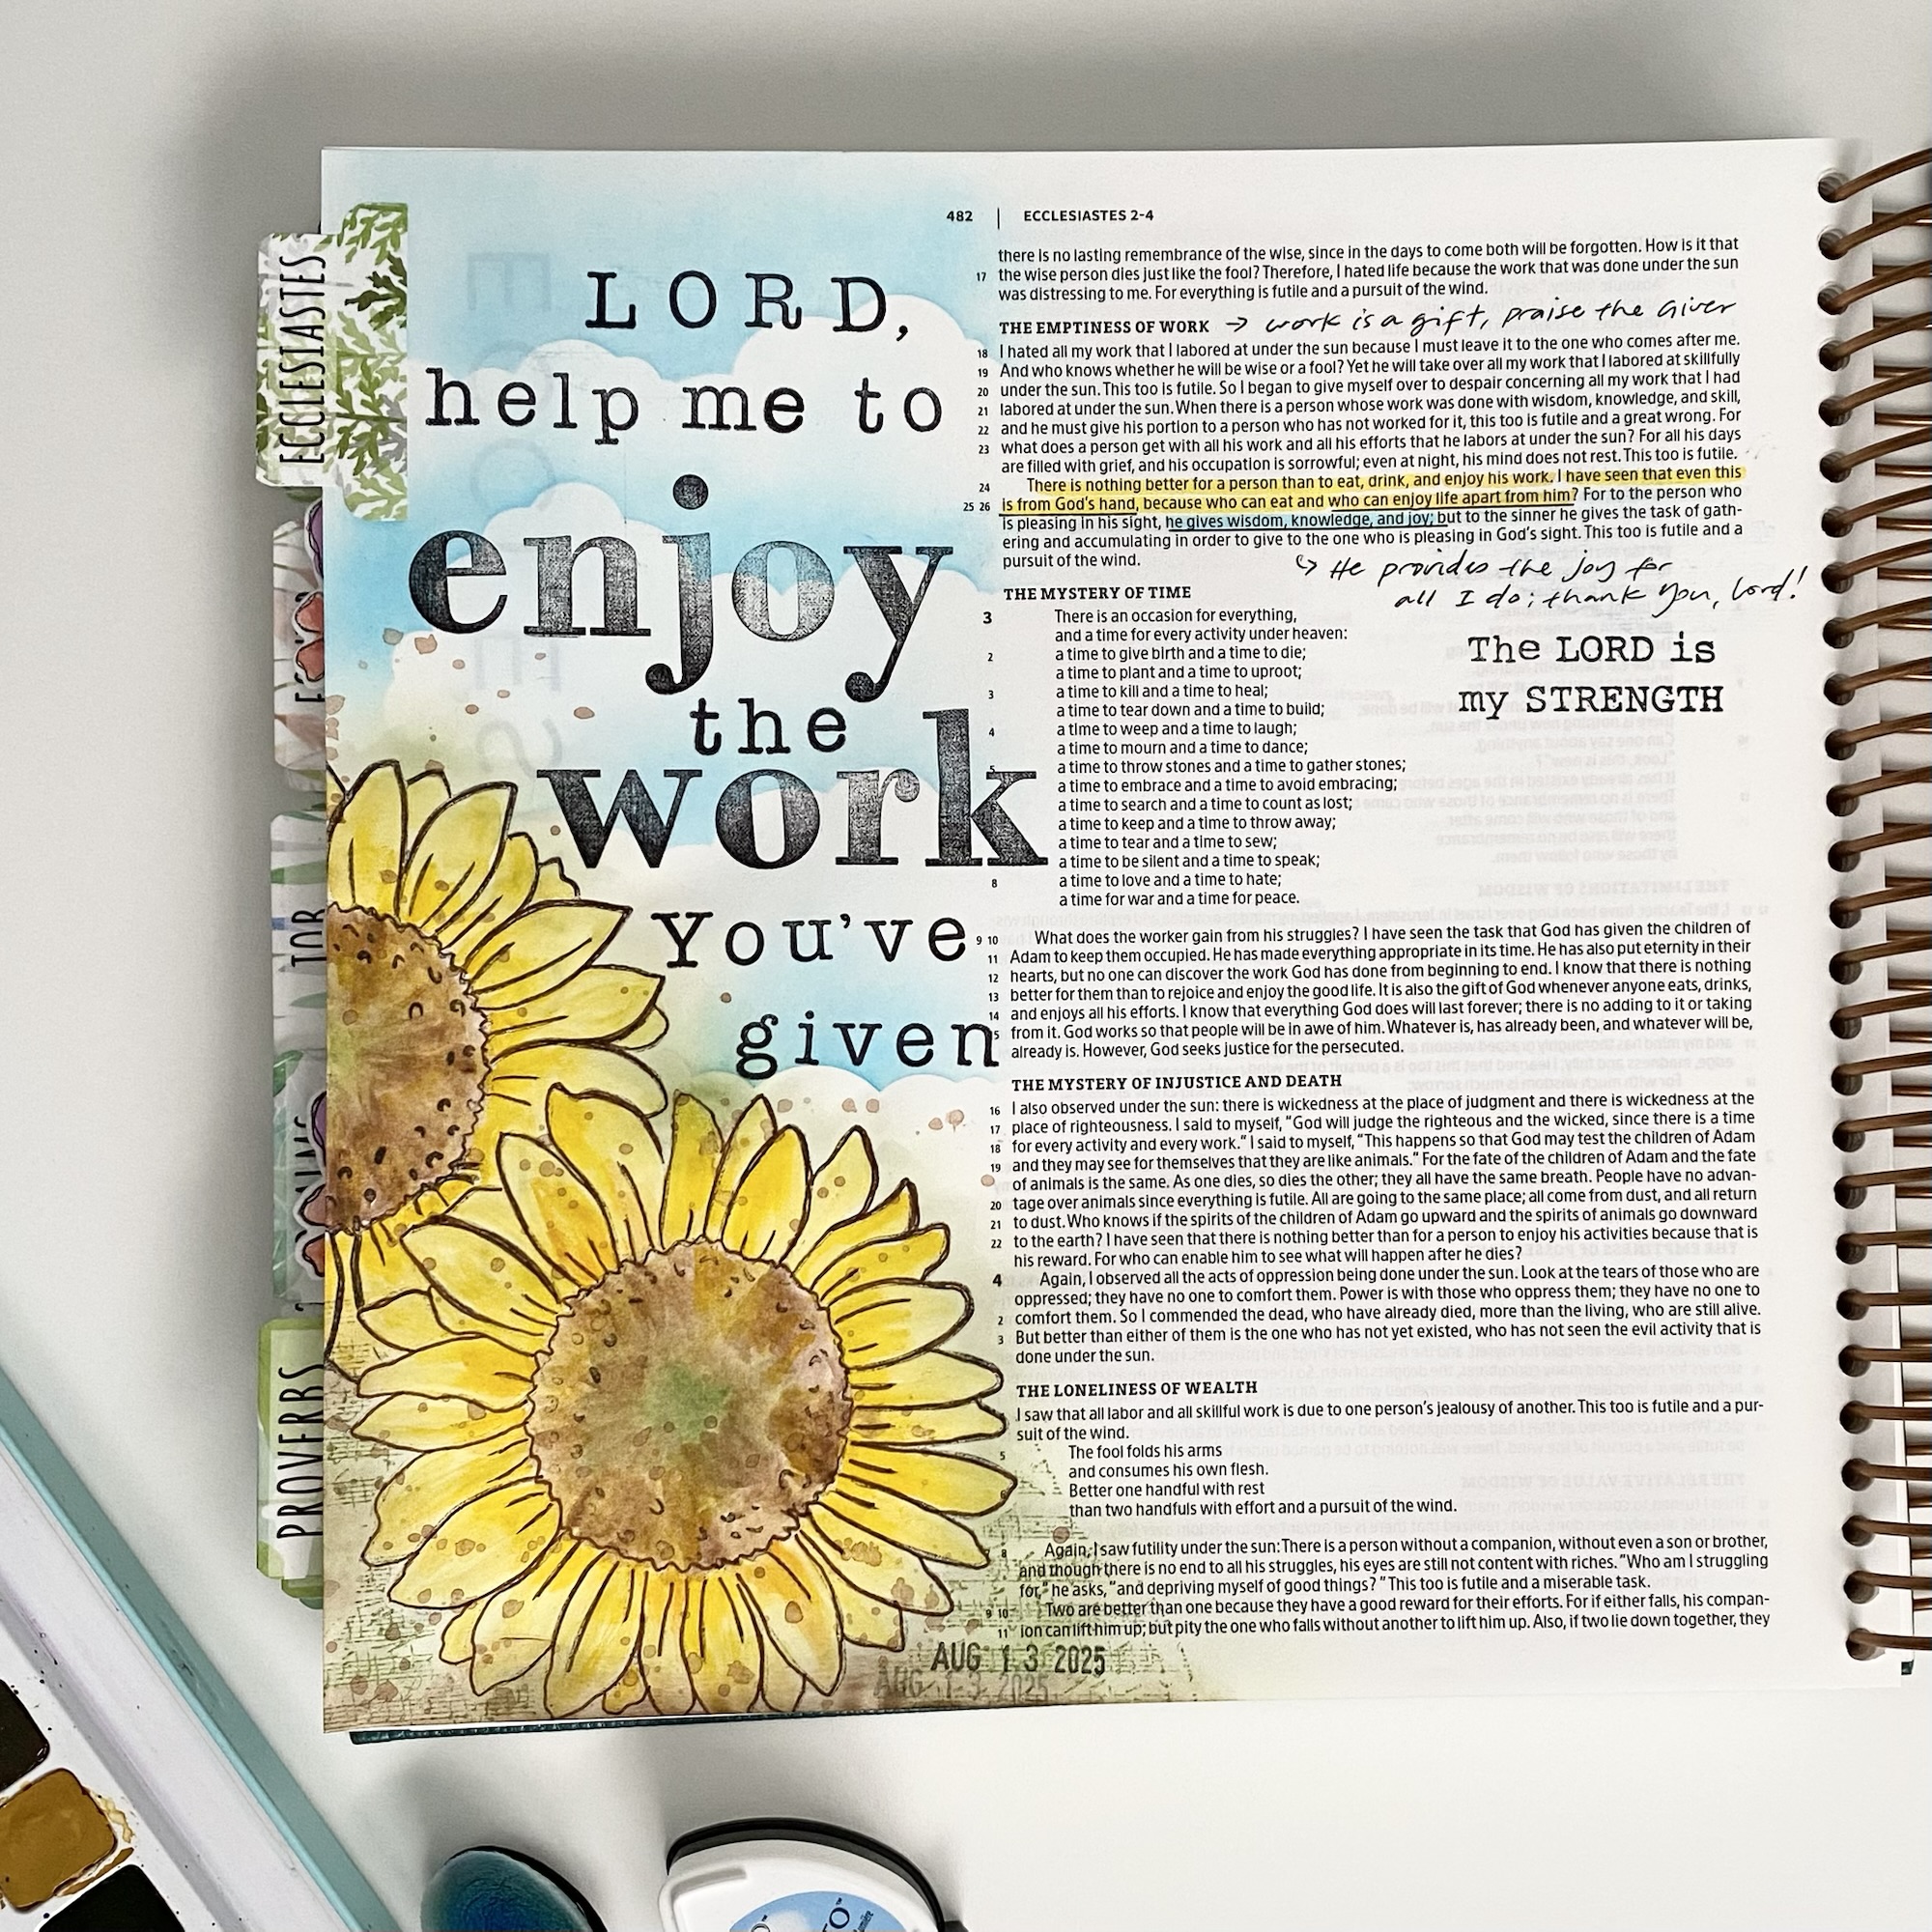 LORD,
help me to
enjoy
the
work
You've
given
ECCLESIASTES
TOR
PROVERBS
482 | ECCLESIASTES 2-4
there is no lasting remembrance of the wise, since in the days to come both will be forgotten. How is it that
17 the wise person dies just like the fool? Therefore, I hated life because the work that was done under the sun
was distressing to me. For everything is futile and a pursuit of the wind.
THE EMPTINESS OF WORK → work is a gift, praise the Giver
18 I hated all my work that I labored at under the sun because I must leave it to the one who comes after me.
19 And who knows whether he will be wise or a fool? Yet he will take over all my work that I labored at skillfully
20 under the sun. This too is futile. So I began to give myself over to despair concerning all my work that I had
21 labored at under the sun. When there is a person whose work was done with wisdom, knowledge, and skill,
22 and he must give his portion to a person who has not worked for it, this too is futile and a great wrong. For
23 what does a person get with all his work and all his efforts that he labors at under the sun? For all his days
are filled with grief, and his occupation is sorrowful; even at night, his mind does not rest. This too is futile.
24 There is nothing better for a person than to eat, drink, and enjoy his work. I have seen that even this
25 26 is from God's hand, because who can eat and who can enjoy life apart from him? For to the person who
is pleasing in his sight, he gives wisdom, knowledge, and joy; but to the sinner he gives the task of gath-
ering and accumulating in order to give to the one who is pleasing in God's sight. This too is futile and a
pursuit of the wind.
↳ He provides the joy for
all I do; thank You, Lord!
The LORD is
my STRENGTH
THE MYSTERY OF TIME
3 There is an occasion for everything,
and a time for every activity under heaven:
2 a time to give birth and a time to die;
a time to plant and a time to uproot;
3 a time to kill and a time to heal;
a time to tear down and a time to build;
4 a time to weep and a time to laugh;
a time to mourn and a time to dance;
5 a time to throw stones and a time to gather stones;
a time to embrace and a time to avoid embracing;
a time to search and a time to count as lost;
a time to keep and a time to throw away;
a time to tear and a time to sew;
a time to be silent and a time to speak;
8 a time to love and a time to hate;
a time for war and a time for peace.
9 10 What does the worker gain from his struggles? I have seen the task that God has given the children of
11 Adam to keep them occupied. He has made everything appropriate in its time. He has also put eternity in their
12 hearts, but no one can discover the work God has done from beginning to end. I know that there is nothing
13 better for them than to rejoice and enjoy the good life. It is also the gift of God whenever anyone eats, drinks,
14 and enjoys all his efforts. I know that everything God does will last forever; there is no adding to it or taking
5 from it. God works so that people will be in awe of him. Whatever is, has already been, and whatever will be,
already is. However, God seeks justice for the persecuted.
THE MYSTERY OF INJUSTICE AND DEATH
16 I also observed under the sun: there is wickedness at the place of judgment and there is wickedness at the
17 place of righteousness. I said to myself, "God will judge the righteous and the wicked, since there is a time
18 for every activity and every work." I said to myself, "This happens so that God may test the children of Adam
19 and they may see for themselves that they are like animals." For the fate of the children of Adam and the fate
of animals is the same. As one dies, so dies the other; they all have the same breath. People have no advan-
20 tage over animals since everything is futile. All are going to the same place; all come from dust, and all return
21 to dust. Who knows if the spirits of the children of Adam go upward and the spirits of animals go downward
22 to the earth? I have seen that there is nothing better than for a person to enjoy his activities because that is
his reward. For who can enable him to see what will happen after he dies?
4 Again, I observed all the acts of oppression being done under the sun. Look at the tears of those who are
oppressed; they have no one to comfort them. Power is with those who oppress them; they have no one to
2 comfort them. So I commended the dead, who have already died, more than the living, who are still alive.
3 But better than either of them is the one who has not yet existed, who has not seen the evil activity that is
done under the sun.
THE LONELINESS OF WEALTH
I saw that all labor and all skillful work is due to one person's jealousy of another. This too is futile and a pur-
suit of the wind.
5 The fool folds his arms
and consumes his own flesh.
Better one handful with rest
than two handfuls with effort and a pursuit of the wind.
8 Again, I saw futility under the sun: There is a person without a companion, without even a son or brother,
and though there is no end to all his struggles, his eyes are still not content with riches. "Who am I struggling
for," he asks, "and depriving myself of good things?" This too is futile and a miserable task.
9 10 Two are better than one because they have a good reward for their efforts. For if either falls, his compan-
11 ion can lift him up; but pity the one who falls without another to lift him up. Also, if two lie down together, they
AUG 13 2025
AUG 13 2025